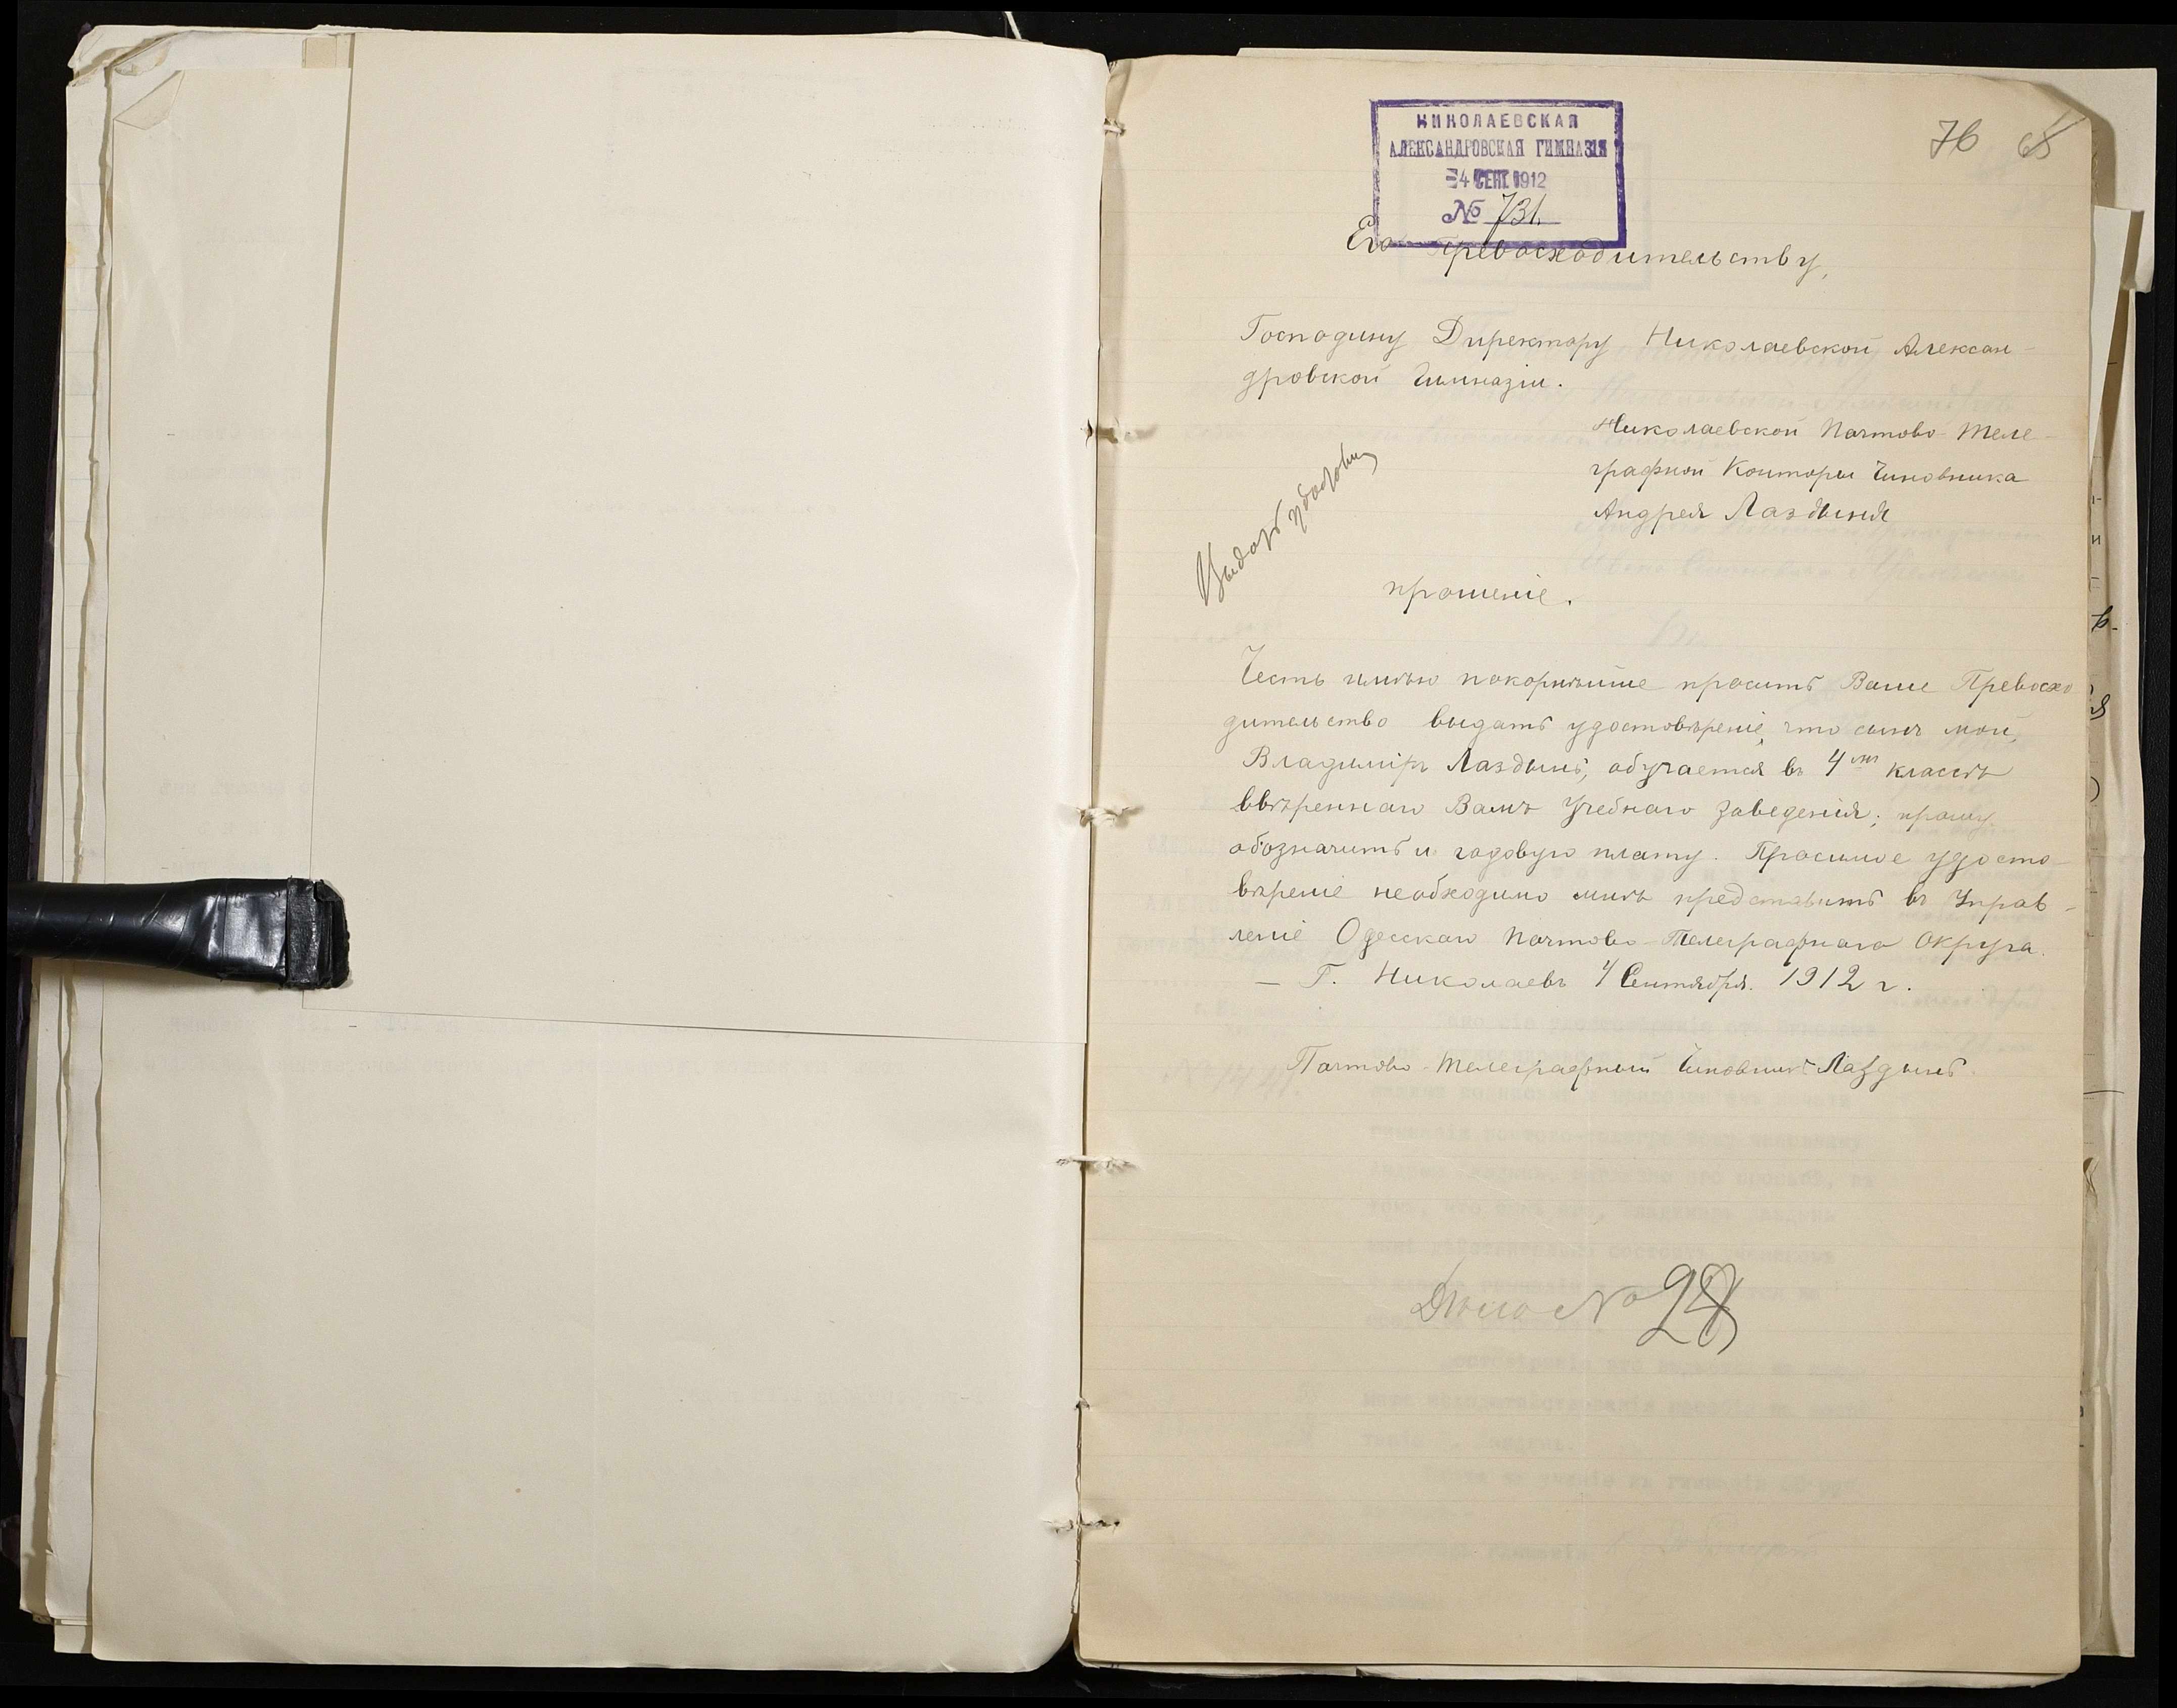 НИКОЛАЕВСКАЯ
АЛЕКСАНДРОВСКАЯ ГИМНАЗІЯ
4 СЕН. 1912
№ 731.
76 65
Его Превосходительству,
Господину Директору Николаевской Алексан-
дровской Гимназіи.
Николаевской Почтово-Теле-
графной Конторы Чиновника
Андрея Лаздыня
прошеніе.
Честь имѣю покорнѣйше просить Ваше Превосхо
дительство выдать удостовѣреніе, что сынъ мой,
Владиміръ Лаздынь, обучается въ 4мъ классѣ
ввѣреннаго Вамъ Учебнаго Заведенія; прошу
обозначить и годовую плату. Просимое удосто-
вѣреніе необходимо мнѣ представить въ Управ-
леніе Одесскаго Почтово-Телеграфнаго Округа.
— Г. Николаевъ 4 Сентября. 1912 г.
Почтово-Телеграфный Чиновникъ Лаздынь.
Дѣло №